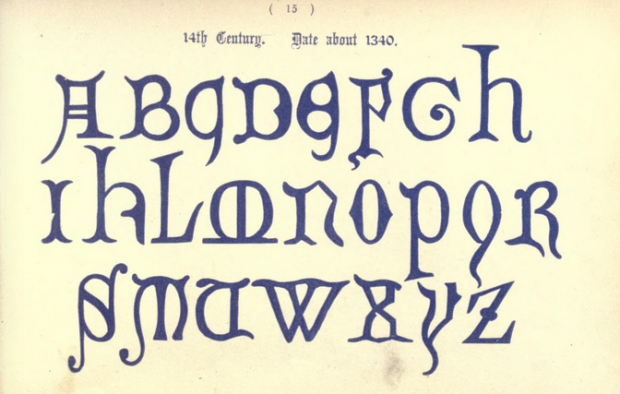 ( 15 )
14th Century. Date about 1340.
A B C D E F G h
I K L M N O P Q R
S T U W X Y Z